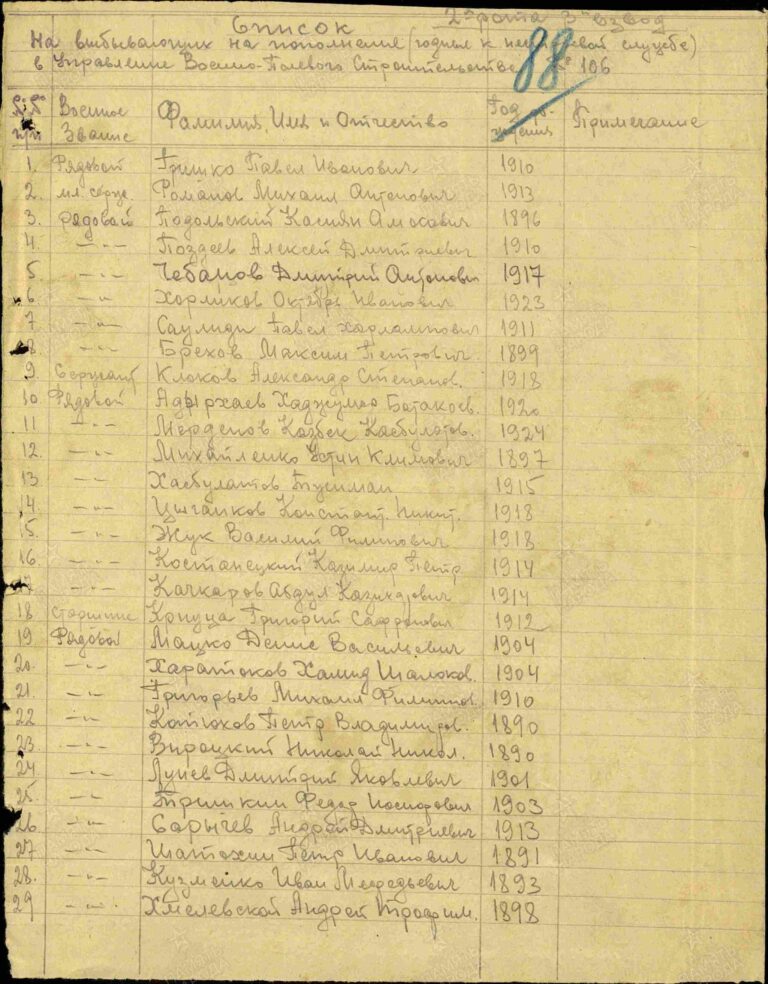 2я рота 3й взвод
Список
На выбывающих на пополнения (годных к нестроевой службе)
в Управление Военно-Полевого Строительства № 106
88
№№ п/п Военное Звание Фамилия, Имя и Отчество Год рождения Примечание
1. Рядовой Гришко Павел Иванович 1910
2. мл. серж. Романов Михаил Антонович 1913
3. рядовой Подольский Касиян Амосович 1896
4. -"- Поздеев Алексей Дмитриевич 1910
5. -"- Чебанов Дмитрий Антонович 1917
6 -"- Хорликов Октябрь Иванович 1923
7 -"- Саулиди Павел Харлампович 1911
8. -"- Брехов Максим Петрович 1899
9 Сержант Клоков Александр Степанов. 1918
10 Рядовой Адырхаев Хаджумар Батакоев. 1920
11 -"- Мерденов Казбек Касбулатов. 1924
12. -"- Михайленко Устин Климович 1897
13 -"- Хасбулатов Тусиман 1915
14. -"- Цыганков Констант. Никит. 1918
15. -"- Жук Василий Филипович 1918
16. -"- Костанецкий Казимир Петр 1914
17 -"- Качкаров Абдул 1914
18 старшина Криуца Григорий Сафронович 1912
19 Рядовой Мацко Денис Васильевич 1904
20. -"- Харатоков Хамид Шалоков. 1904
21. -"- Григорьев Михаил Филиппов. 1910
22 -"- Котюков Петр Владимиров. 1890
23. -"- Вироцкий Николай Никол. 1890
24 -"- Лунев Дмитрий Яковлевич 1901
25. -"- Тришкин Федор Иосифович 1903
26 -"- Сарычев Андрей Дмитриевич 1913
27 -"- Шатохин Петр Иванович 1891
28. -"- Кузменко Иван Мефедьевич 1893
29 -"- Хмелевской Андрей Трофим. 1898